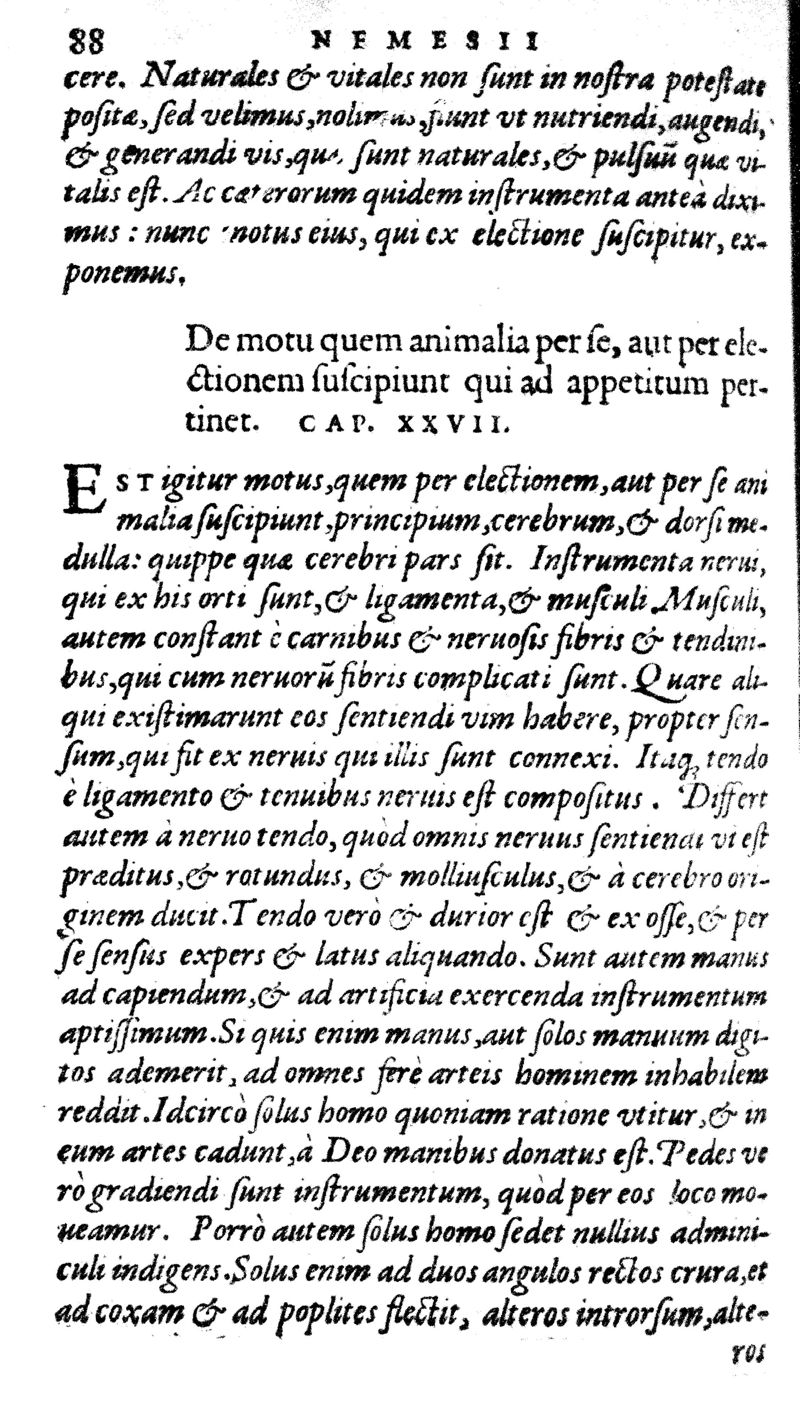 88 NEMESII
cere. Naturales & vitales non ſunt in noſtra poteſtate
poſitæ, ſed velimus, nolimus, fiunt vt nutriendi, augendi,
& generandi vis, quæ ſunt naturales, & pulſuũ quæ vi-
talis eſt. Ac cæterorum quidem inſtrumenta anteà dixi-
mus : nunc motus eius, qui ex electione ſuſcipitur, ex-
ponemus.
De motu quem animalia per ſe, aut per ele-
ctionem ſuſcipiunt qui ad appetitum per-
tinet. CAP. XXVII.
EST igitur motus, quem per electionem, aut per ſe ani
malia ſuſcipiunt, principium, cerebrum, & dorſi me-
dulla: quippe quæ cerebri pars ſit. Inſtrumenta nerui,
qui ex his orti ſunt, & ligamenta, & muſculi. Muſculi,
autem conſtant è carnibus & neruoſis fibris & tendini-
bus, qui cum neruorũ fibris complicati ſunt. Quare ali-
qui exiſtimarunt eos ſentiendi vim habere, propter ſen-
ſum, qui fit ex neruis qui illis ſunt connexi. Itaq; tendo
è ligamento & tenuibus neruis eſt compoſitus. Differt
autem à neruo tendo, quòd omnis neruus ſentiendi vi eſt
præditus, & rotundus, & molliuſculus, & à cerebro ori-
ginem ducit. Tendo verò & durior eſt & ex oſſe, & per
ſe ſenſus expers & latus aliquando. Sunt autem manus
ad capiendum, & ad artificia exercenda inſtrumentum
aptiſſimum. Si quis enim manus, aut ſolos manuum digi-
tos ademerit, ad omnes ferè arteis hominem inhabilem
reddit. Idcircò ſolus homo quoniam ratione vtitur, & in
eum artes cadunt, à Deo manibus donatus eſt. Pedes ve
rò gradiendi ſunt inſtrumentum, quòd per eos loco mo-
ueamur. Porrò autem ſolus homo ſedet nullius admini-
culi indigens. Solus enim ad duos angulos rectos crura, et
ad coxam & ad poplites flectit, alteros introrſum, alte-
ros